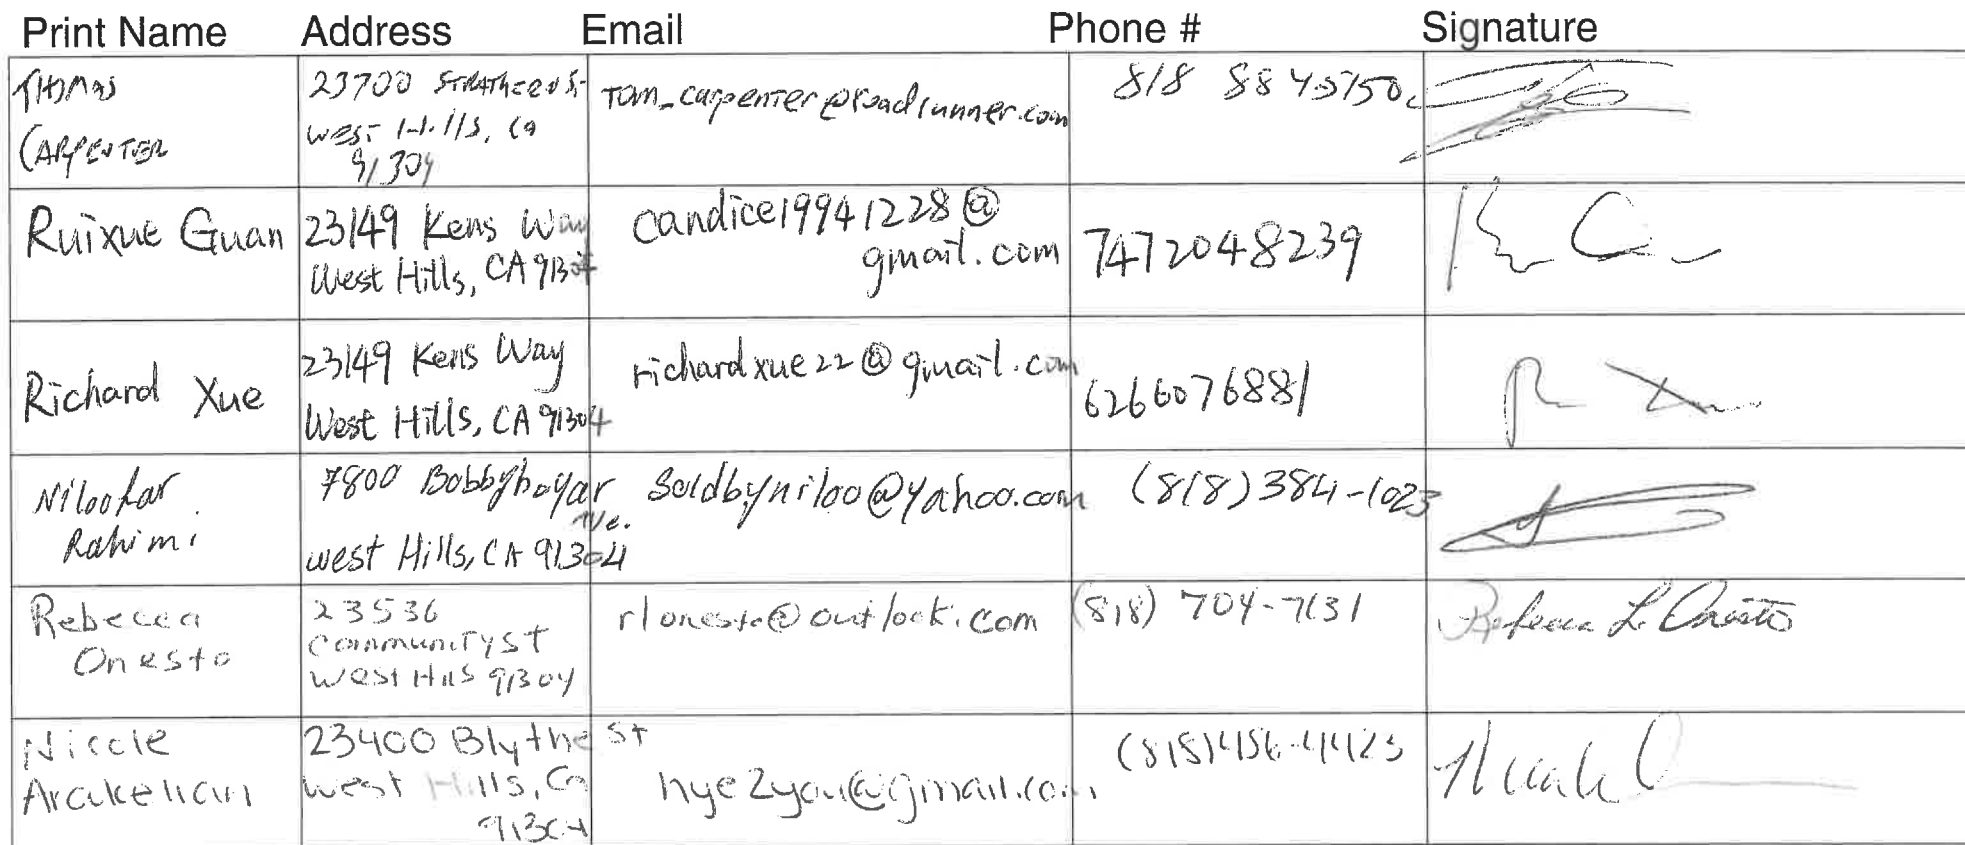 Print Name Address Email Phone # Signature
THOMAS
CARPENTER
23700 STRATHERN St
West Hills, Ca
91304
Tom_carpenter@roadrunner.com
818 8845150
Ruixue Guan
23149 Kens Way
West Hills, CA 91304
candice19941228@
gmail.com
7472048239
Richard Xue
23149 Kens Way
West Hills, CA 91304
richardxue22@gmail.com
6266076881
Niloofar
Rahimi
7800 Bobbyboyar
Ave.
west Hills, CA 91304
Soldbyniloo@yahoo.com
(818) 384-1023
Rebecca
Onesto
23536
Community St
West Hills 91304
rlonesto@outlook.com
(818) 704-7131
Rebecca L. Onesto
Nicole
Arakelian
23400 Blythe St
West Hills, Ca
91304
hye2you@gmail.com